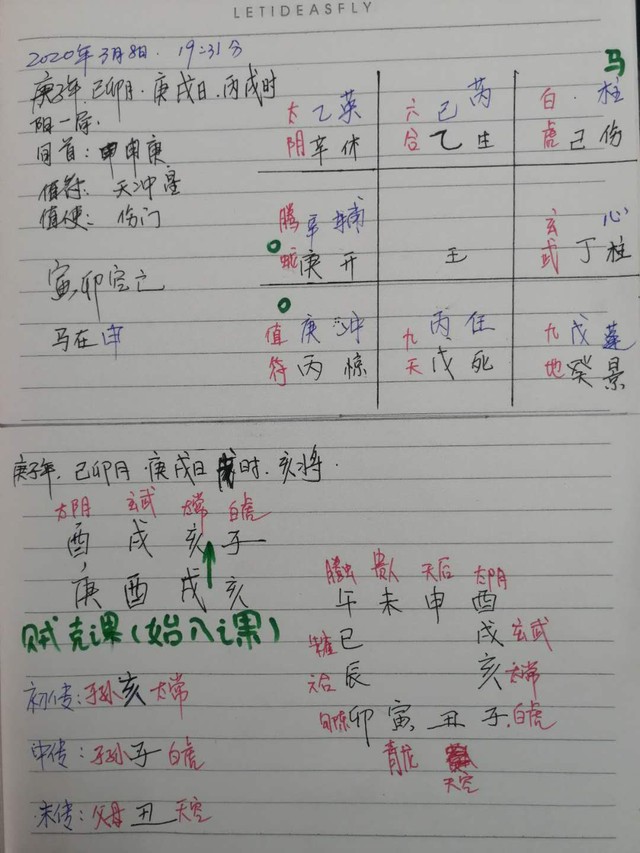 LETIDEASFLY
2020年3月8日. 19:31分
庚子年.己卯月.庚戌日.丙戌时
阳一局.
旬首:申申庚
值符: 天冲星
值使: 伤门
寅卯空亡
马在申
马
太 乙 英 六 己 芮 白 . 柱
阴 辛 休 合 乙 生 虎 己 伤
腾 辛 辅 玄 心
蛇 庚 开 壬 武 丁 柱
值 庚 冲 九 丙 任 九 戊 蓬
符 丙 惊 天 戊 死 地 癸 景
庚子年.己卯月.庚戌日 时.亥将.
太阴 玄武 太常 白虎
酉 戌 亥 子
庚 酉 戌 亥
贼克课(始入课)
初传:子孙亥 太常
中传:子孙子 白虎
末传:父母丑 天空
腾蛇 贵人 天后 太阴
午 未 申 酉
巳 戌 玄武
六合 辰 亥 太常
勾陈 卯 寅 丑 子.白虎
青龙
天空